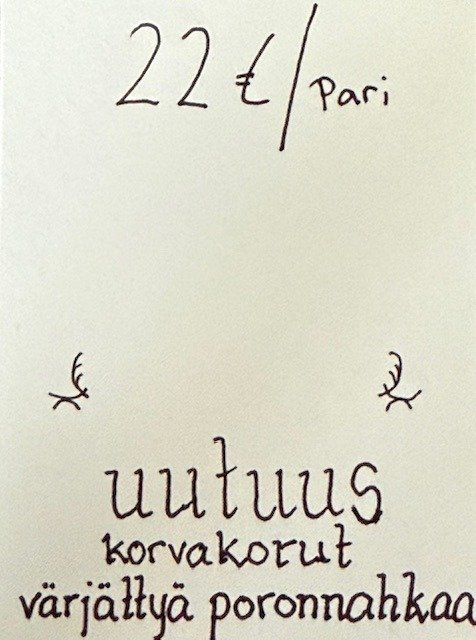 22 €/Pari
uutuus
korvakorut
värjättyä poronnahkaa